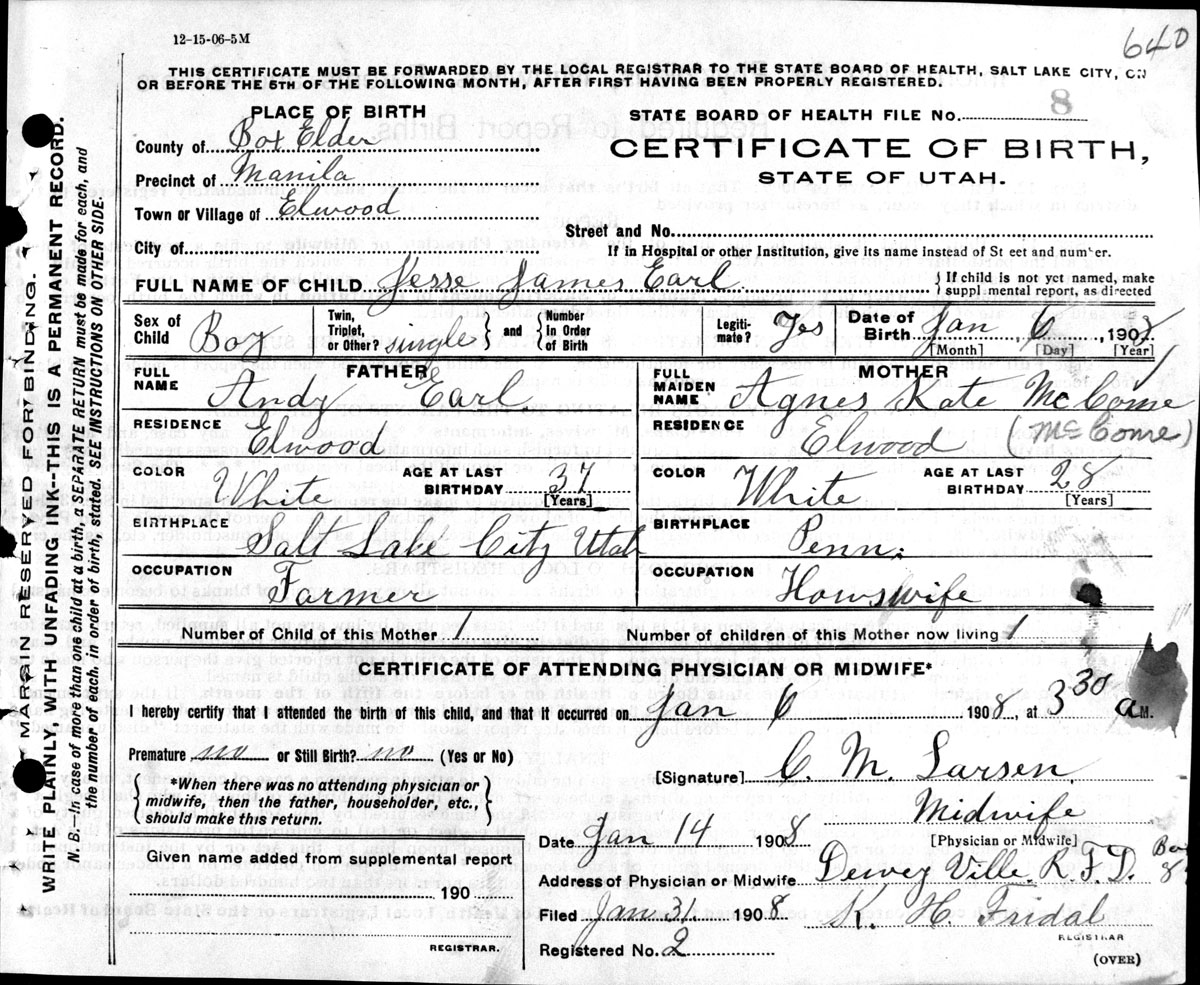 12-15-06-5M
640
THIS CERTIFICATE MUST BE FORWARDED BY THE LOCAL REGISTRAR TO THE STATE BOARD OF HEALTH, SALT LAKE CITY, ON
OR BEFORE THE 5TH OF THE FOLLOWING MONTH, AFTER FIRST HAVING BEEN PROPERLY REGISTERED.
PLACE OF BIRTH
County of Box Elder
Precinct of Manila
Town or Village of Elwood
City of
STATE BOARD OF HEALTH FILE No. 8
CERTIFICATE OF BIRTH,
STATE OF UTAH.
Street and No.
If in Hospital or other Institution, give its name instead of St eet and number.
FULL NAME OF CHILD Jesse James Earl { If child is not yet named, make
suppl mental report, as directed
Sex of Child Boy Twin, Triplet, or Other? single } and { Number In Order of Birth Legiti-mate? Yes Date of Birth Jan 6, 1908
[Month] [Day] [Year]
FATHER
FULL NAME Andy Earl
RESIDENCE Elwood
COLOR White AGE AT LAST BIRTHDAY 37 [Years]
BIRTHPLACE Salt Lake City Utah
OCCUPATION Farmer
MOTHER
FULL MAIDEN NAME Agnes Kate McCome
RESIDENCE Elwood (McCome)
COLOR White AGE AT LAST BIRTHDAY 28 [Years]
BIRTHPLACE Penn.
OCCUPATION Howswife
Number of Child of this Mother 1 Number of children of this Mother now living 1
CERTIFICATE OF ATTENDING PHYSICIAN OR MIDWIFE*
I hereby certify that I attended the birth of this child, and that it occurred on Jan 6 1908, at 3 30 a M.
Premature no or Still Birth? no (Yes or No)
{ *When there was no attending physician or
midwife, then the father, householder, etc.,
should make this return. }
Given name added from supplemental report
190
REGISTRAR.
[Signature] C. M. Larsen
Midwife
Date Jan 14 1908 [Physician or Midwife]
Address of Physician or Midwife Dewey Ville R.F.D. Box 8
Filed Jan 31 1908 K. H. Fridal
REGISTRAR
Registered No. 2
(OVER)
MARGIN RESERVED FOR BINDING.
WRITE PLAINLY, WITH UNFADING INK--THIS IS A PERMANENT RECORD.
N. B.—In case of more than one child at a birth, a SEPARATE RETURN must be made for each, and
the number of each, in order of birth, stated. SEE INSTRUCTIONS ON OTHER SIDE.